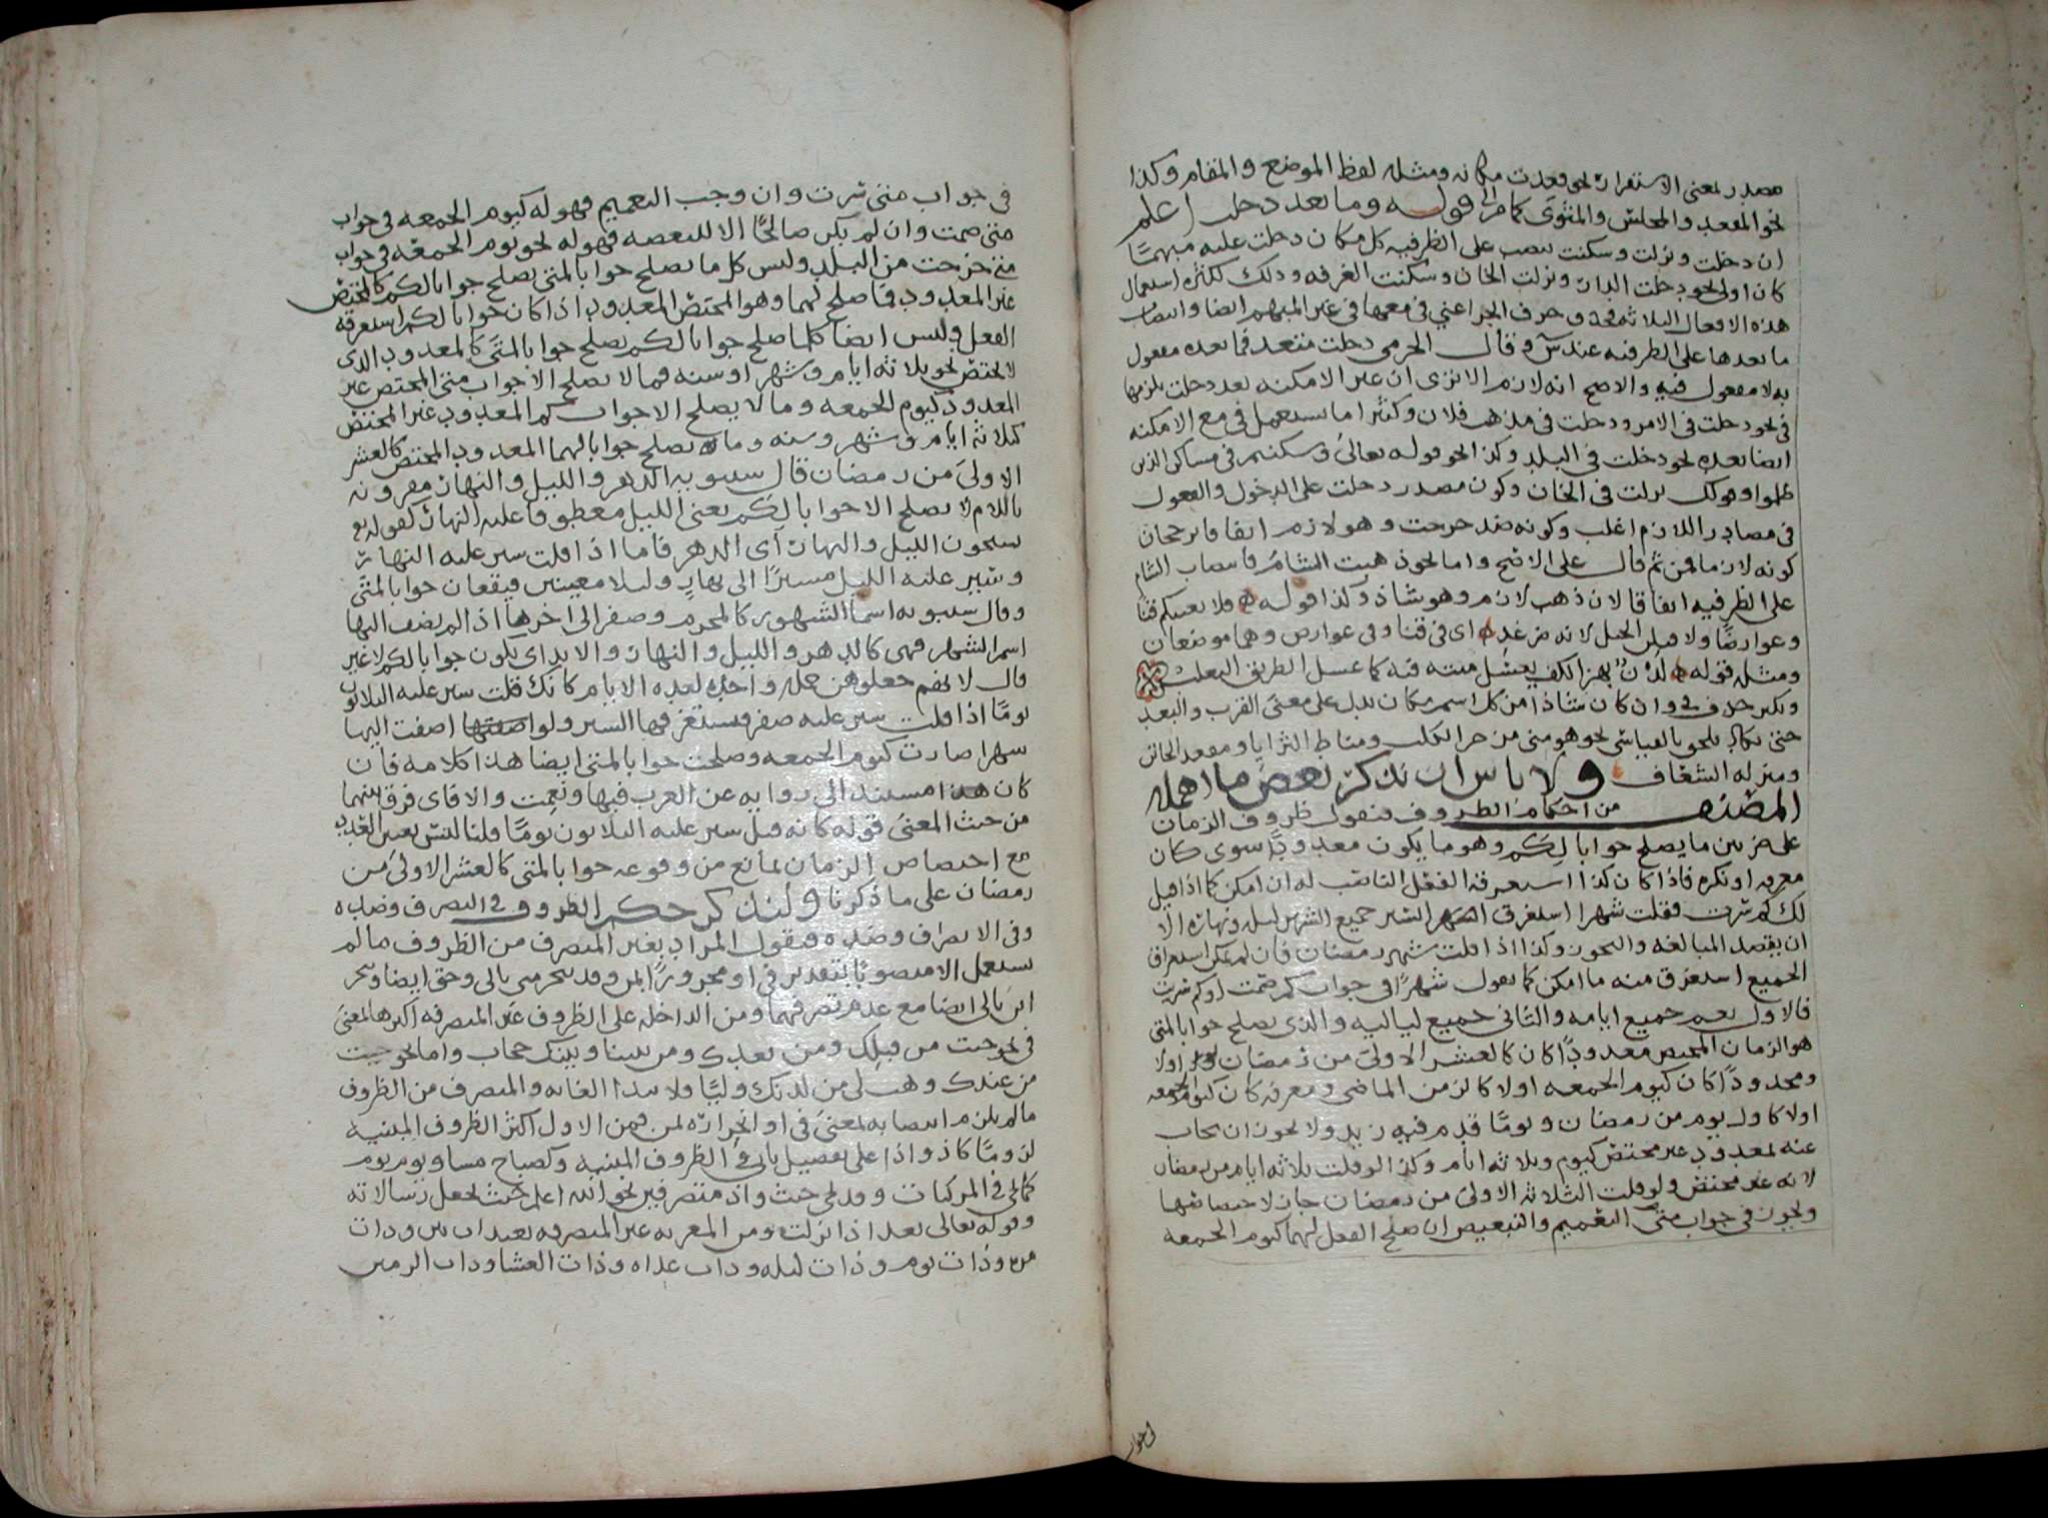 مصدر بمعنى الاستقرار نحو قعدت مكانه ومثله لفظ الموضع والمقام وكذا
نحو المقعد والمجلس والمثوى كما مر الى قوله وما بعد دخلت اعلم
ان دخلت ونزلت وسكنت تنصب على الظرفيه كل مكان دخلت عليه مبهمًا
كان اولا نحو دخلت الدار ونزلت الخان وسكنت الغرفه وذلك لكثره استعمال
هذه الافعال الثلاثه فحذف حرف الجر اعني في معها في غير المبهم ايضا وانتصاب
ما بعدها على الظرفيه عند س وقال الجرمي دخلت متعد فما بعده مفعول
به لا مفعول فيه والاصح انه لازم الا ترى ان غير الامكنه بعد دخلت يلزمها
في نحو دخلت في الامر ودخلت في مذهب فلان وكثيرا ما يستعمل في مع الامكنه
ايضا بعده نحو دخلت في البلد وكذا نحو قوله تعالى وسكنتم في مساكن الذين
ظلموا وقولك نزلت في الخان وكون مصدر دخلت على الدخول والفعول
في مصادر اللازم اغلب وكونه ضد خرجت وهو لازم اتفاقا يرجحان
كونه لازما فمن ثم قال على الاصح واما نحو ذهبت الشام فانتصاب الشام
على الظرفيه اتفاقا لان ذهب لازم وهو شاذ وكذا قوله فلا بغينكم قنا
وعوارضًا ولاقبلن الخيل لابة ضرغد اى في قنا وفي عوارض وهما موضعان
ومثله قوله لدن بهز الكف يعسل متنه فيه كما عسل الطريق الثعلب
ويكثر حذف في وان كان شاذا من كل اسم مكان يدل على معنى القرب والبعد
حتى يكاد يلحق بالقياس نحو هو مني مزجر الكلب ومناط الثريا ومقعد الخاتن
ومنزله الشغاف ولا باس ان نذكر بعض ما اهمله
المصنف من احكام الظروف فنقول ظروف الزمان
على ضربين ما يصلح جوابا لكم وهو ما يكون معدودًا سوى كان
معرفه او نكره فاذا كان كذا استغرقه الفعل الناصب له ان امكن كما اذا قيل
لك كم سرت فقلت شهرا استغرق السير جميع الشهر ليله ونهاره الا
ان يقصد المبالغه والتجوز وكذا اذا قلت شهر رمضان فان لم يمكن استغراق
الجميع استغرق منه ما امكن كما تقول شهرًا في جواب كم صمت او كم سريت
فالاول يعم جميع ايامه والثاني جميع لياليه والذي يصلح جوابا لمتى
هو الزمان المختص معدودًا كان كالعشر الاولى من رمضان اولا
ومحدودًا كان كيوم الجمعه اولا كالزمن الماضي ومعرفه كان كيوم الجمعه
اولا كاول يوم من رمضان ويومًا قدم فيه زيد ولا يجوز ان يجاب
عنه بمعدود غير مختص كيوم وثلاثه ايام وكذا لو قلت ثلاثه ايام من رمضان
لانه غير مختص ولو قلت الثلاثه الاولى من رمضان جاز لاختصاصها
ويجوز في جواب متى التعميم والتبعيض ان صلح الفعل لهما كيوم الجمعه
في جواب متى سرت وان وجب التعميم فهو له كيوم الجمعه في جواب
متى صمت وان لم يكن صالحًا الا للتبعيض فهو له نحو يوم الجمعه في جواب
متى خرجت من البلد وليس كل ما يصلح جوابا لمتى يصلح جوابا لكم كالمختص
غير المعدود فما صلح لهما وهو المختص المعدود اذا كان جوابا لكم استغرقه
الفعل وليس ايضا كلما صلح جوابا لكم يصلح جوابا لمتى كالمعدود الذى
لا يختص نحو ثلاثه ايام وشهر او سنه فما لا يصلح الا جواب متى المختص غير
المعدود كيوم الجمعه وما لا يصلح الا جواب كم المعدود غير المختص
كثلاثه ايام وشهر وسنه وما يصلح جوابا لهما المعدود المختص كالعشر
الاولى من رمضان قال سيبويه الدهر والليل والنهار مقرونه
باللام لا يصلح الا جوابا لكم يعنى الليل معطوفا عليه النهار كقوله تع
يسبحون الليل والنهار اى الدهر فاما اذا قلت سير عليه النهار
وسير عليه الليل مسيرًا الى نهارٍ وليلا معينين فيقعان جوابا لمتى
وقال سيبويه اسما الشهور كالمحرم وصفر الى اخرها اذا لم يضف اليها
اسم الشهر فهى كالدهر والليل والنهار والابد اى يكون جوابا لكم لا غير
قال لانهم جعلوهن جمله واحده لعده الايام كانك قلت سير عليه الثلاثون
يومًا اذا قلت سير عليه صفر فيستغرقها السير ولو اضفت اليها
شهرا صارت كيوم الجمعه وصلحت جوابا لمتى ايضا هذا كلامه فان
كان هذا مستندا الى روايه عن العرب فبها ونعمت والا فاى فرق بينهما
من حيث المعنى قوله كانه قيل سير عليه الثلاثون يومًا قلنا ليس بعين العدد
مع اختصاص الزمان بمانع من وقوعه جوابا لمتى كالعشر الاولى من
رمضان على ما ذكرنا ولنذكر حكم الظروف في التصرف وضده
وفى الانصراف وضده فنقول المراد بغير المتصرف من الظروف ما لم
يستعمل الا منصوبًا بتقدير في او مجرورًا بمن وقد ينجر متى بالى وحتى ايضا وينجر
اين بالى ايضا مع عدم تصرفهما ومن الداخله على الظروف غير المتصرفه اكثرها بمعنى
في نحو جئت من قبلك ومن بعدك ومن بيننا وبينك حجاب واما نحو جئت
من عندك وهب لى من لدنك وليًا فلابتدا الغايه والمتصرف من الظروف
ما لم يلزم انتصابه بمعنى في او انجراره بمن فمن الاول اكثر الظروف المبنيه
لزومًا كاذ واذا على تفصيل ياتى في الظروف المبنيه وكصباح مسا ويوم يوم
كما يجى في المركبات وقد يجى حيث واذ متصرفين نحو الله اعلم حيث يجعل رسالاته
وقوله تعالى بعد اذ انزلت ومن المعربه غير المتصرفه بعيدات بين وذات
مره وذات يوم وذات ليله وذات غداه وذات العشا وذات الزمين